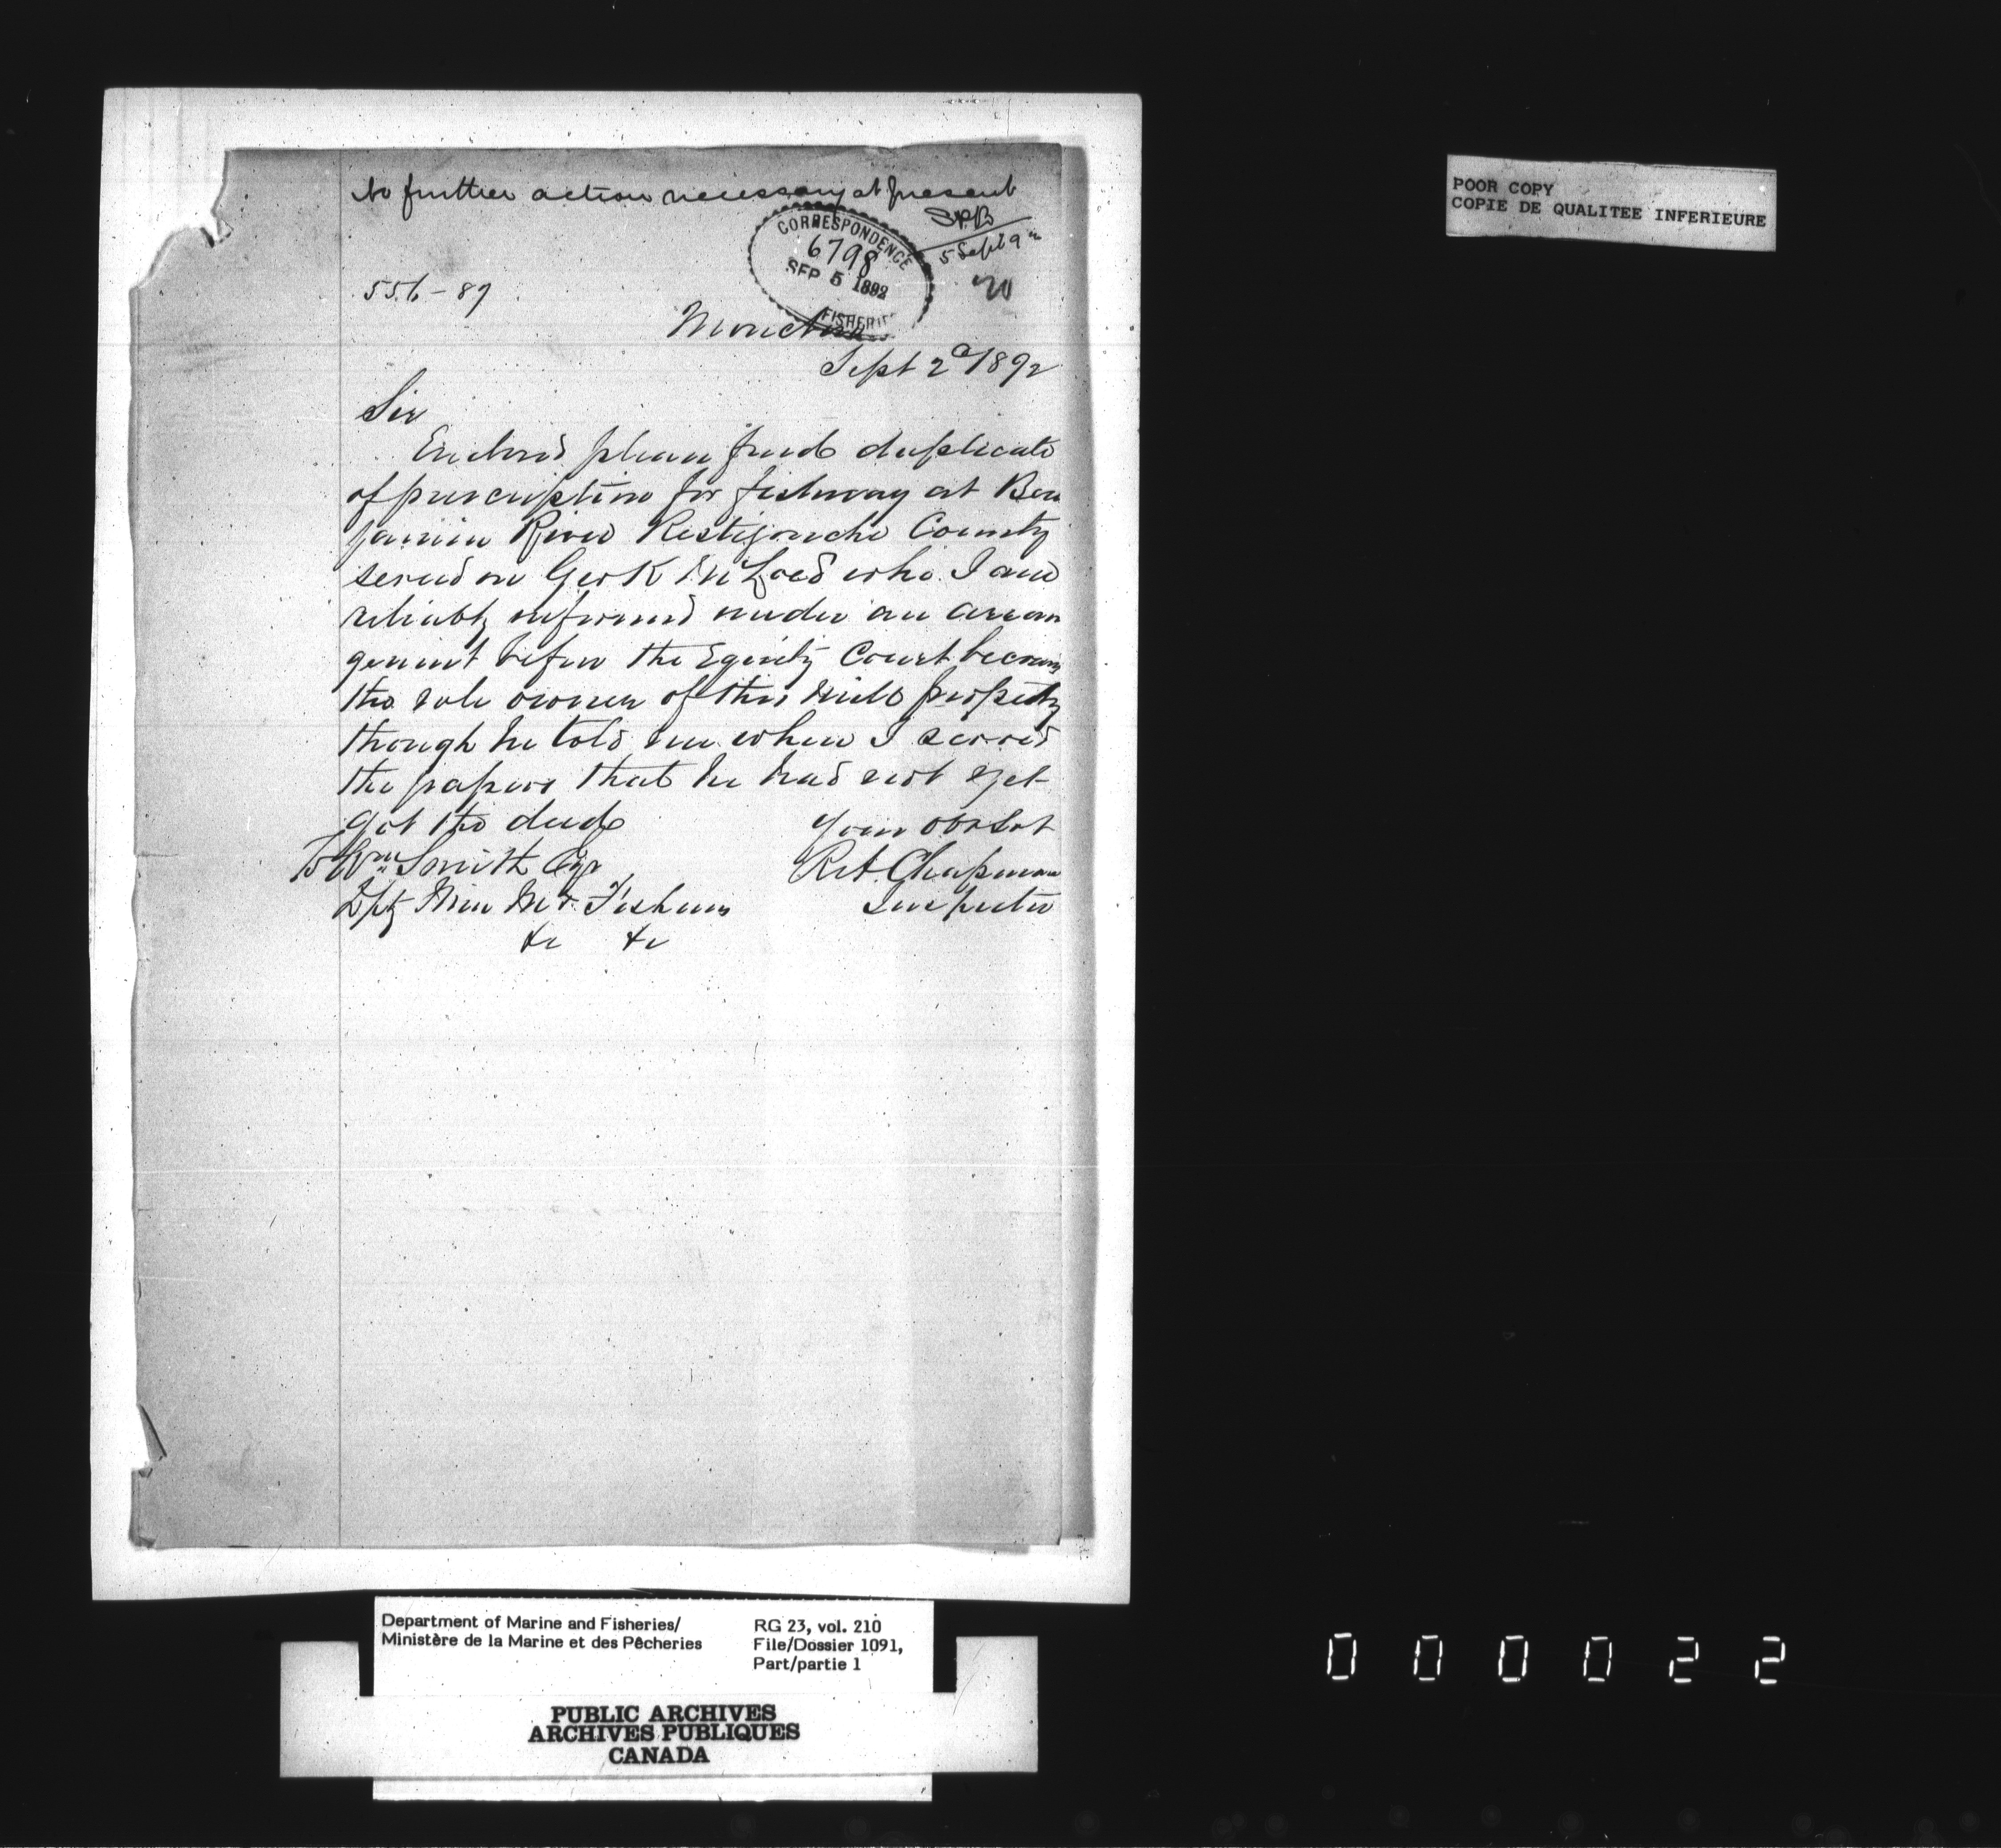 No further action necessary at present
S.P.B
5 Sept 92
CORRESPONDENCE
6798
SEP 5 1892
FISHERI
556-87
Moncton
Sept 2d 1892
Sir
Enclosed please find duplicate
of prescription for fishway at Ben
jamin River Restigouche County
served on Geo K McLeod who I am
reliably informed under an arran
gement before the Equity Court became
the sole owner of this mill property
though he told me when I served
the papers that he had not yet
got the deed
Your obt Svt
To Wm Smith Esqr
R A Chapman
Dpty Min M & Fisheries
Inspector
&c &c
POOR COPY
COPIE DE QUALITEE INFERIEURE
Department of Marine and Fisheries/
Ministère de la Marine et des Pêcheries
RG 23, vol. 210
File/Dossier 1091,
Part/partie 1
PUBLIC ARCHIVES
ARCHIVES PUBLIQUES
CANADA
000022